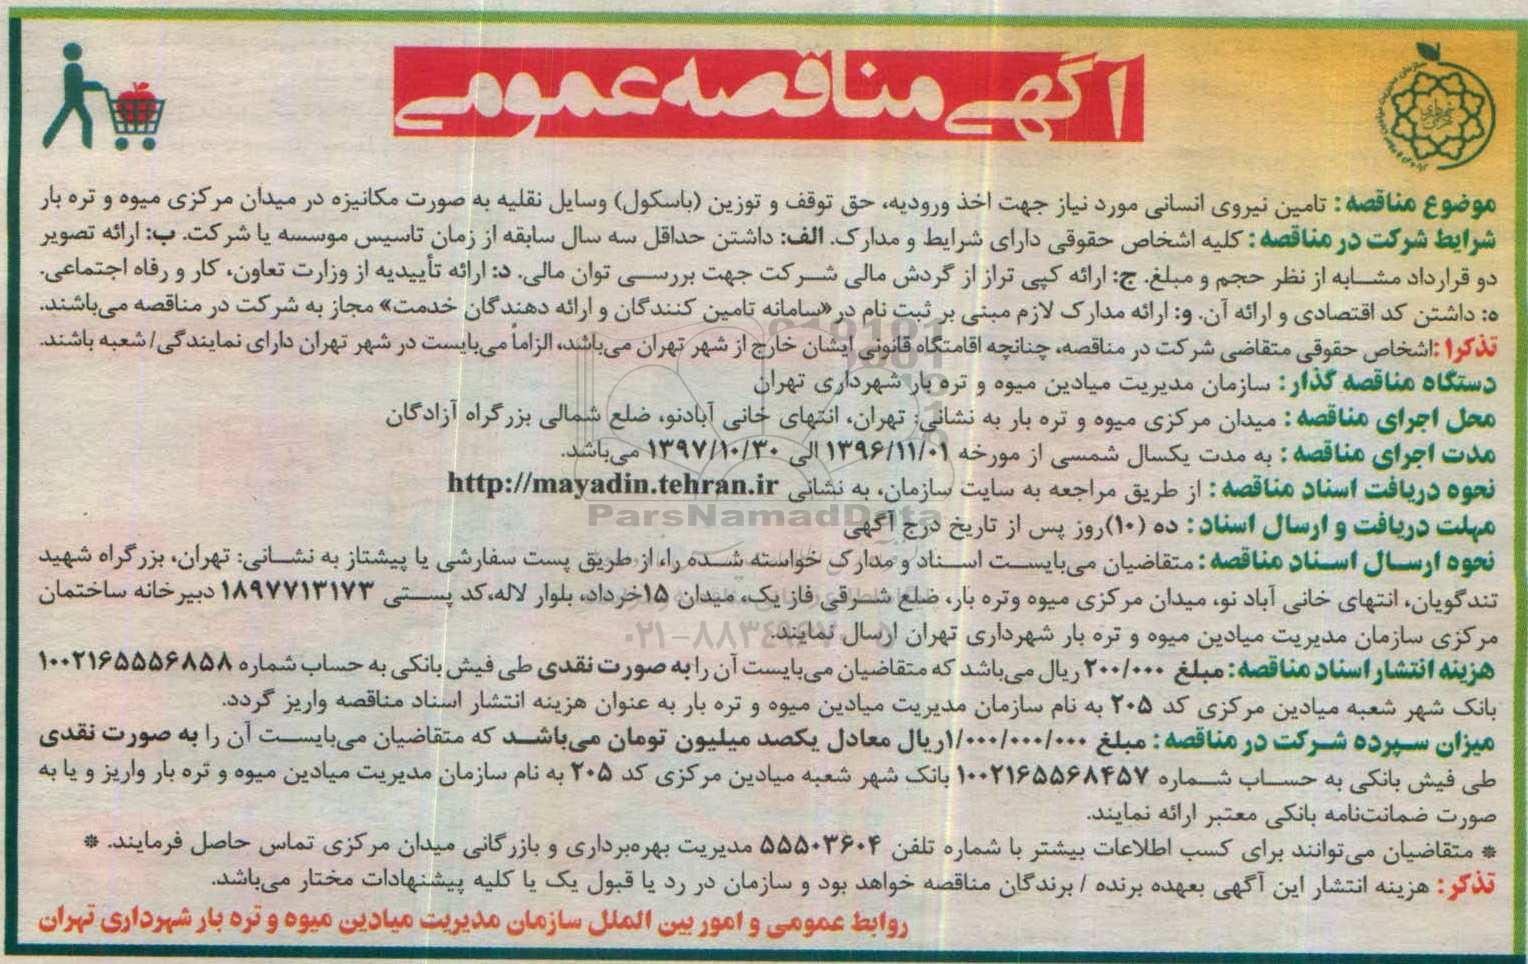 آگهی مناقصه عمومی
موضوع مناقصه: تامین نیروی انسانی مورد نیاز جهت اخذ ورودیه، حق توقف و توزین (باسکول) وسایل نقلیه به صورت مکانیزه در میدان مرکزی میوه و تره بار
شرایط شرکت در مناقصه: کلیه اشخاص حقوقی دارای شرایط و مدارک. الف: داشتن حداقل سه سال سابقه از زمان تاسیس موسسه یا شرکت. ب: ارائه تصویر
دو قرارداد مشابه از نظر حجم و مبلغ. ج: ارائه کپی تراز از گردش مالی شرکت جهت بررسی توان مالی. د: ارائه تأییدیه از وزارت تعاون، کار و رفاه اجتماعی.
ه: داشتن کد اقتصادی و ارائه آن. و: ارائه مدارک لازم مبنی بر ثبت نام در «سامانه تامین کنندگان و ارائه دهندگان خدمت» مجاز به شرکت در مناقصه می‌باشند.
تذکر۱: اشخاص حقوقی متقاضی شرکت در مناقصه، چنانچه اقامتگاه قانونی ایشان خارج از شهر تهران می‌باشد، الزاماً می‌بایست در شهر تهران دارای نمایندگی/ شعبه باشند.
دستگاه مناقصه گذار: سازمان مدیریت میادین میوه و تره بار شهرداری تهران
محل اجرای مناقصه: میدان مرکزی میوه و تره بار به نشانی: تهران، انتهای خانی آبادنو، ضلع شمالی بزرگراه آزادگان
مدت اجرای مناقصه: به مدت یکسال شمسی از مورخه ۱۳۹۶/۱۱/۰۱ الی ۱۳۹۷/۱۰/۳۰ می‌باشد.
نحوه دریافت اسناد مناقصه: از طریق مراجعه به سایت سازمان، به نشانی http://mayadin.tehran.ir
ParsNamadData
مهلت دریافت و ارسال اسناد: ده (۱۰)روز پس از تاریخ درج آگهی
نحوه ارسال اسناد مناقصه: متقاضیان می‌بایست اسناد و مدارک خواسته شده را، از طریق پست سفارشی یا پیشتاز به نشانی: تهران، بزرگراه شهید
تندگویان، انتهای خانی آباد نو، میدان مرکزی میوه وتره بار، ضلع شرقی فاز یک، میدان ۱۵خرداد، بلوار لاله،کد پستی ۱۸۹۷۷۱۳۱۷۳ دبیرخانه ساختمان
مرکزی سازمان مدیریت میادین میوه و تره بار شهرداری تهران ارسال نمایند.
۰۲۱-۸۸۳۴۹۶۷۰-۵
هزینه انتشار اسناد مناقصه: مبلغ ۲۰۰/۰۰۰ ریال می‌باشد که متقاضیان می‌بایست آن را به صورت نقدی طی فیش بانکی به حساب شماره ۱۰۰۲۱۶۵۵۵۶۸۵۸
بانک شهر شعبه میادین مرکزی کد ۲۰۵ به نام سازمان مدیریت میادین میوه و تره بار به عنوان هزینه انتشار اسناد مناقصه واریز گردد.
میزان سپرده شرکت در مناقصه: مبلغ ۱/۰۰۰/۰۰۰/۰۰۰ریال معادل یکصد میلیون تومان می‌باشد که متقاضیان می‌بایست آن را به صورت نقدی
طی فیش بانکی به حساب شماره ۱۰۰۲۱۶۵۵۶۸۴۵۷ بانک شهر شعبه میادین مرکزی کد ۲۰۵ به نام سازمان مدیریت میادین میوه و تره بار واریز و یا به
صورت ضمانت‌نامه بانکی معتبر ارائه نمایند.
* متقاضیان می‌توانند برای کسب اطلاعات بیشتر با شماره تلفن ۵۵۵۰۳۶۰۴ مدیریت بهره‌برداری و بازرگانی میدان مرکزی تماس حاصل فرمایند. *
تذکر: هزینه انتشار این آگهی بعهده برنده / برندگان مناقصه خواهد بود و سازمان در رد یا قبول یک یا کلیه پیشنهادات مختار می‌باشد.
روابط عمومی و امور بین الملل سازمان مدیریت میادین میوه و تره بار شهرداری تهران